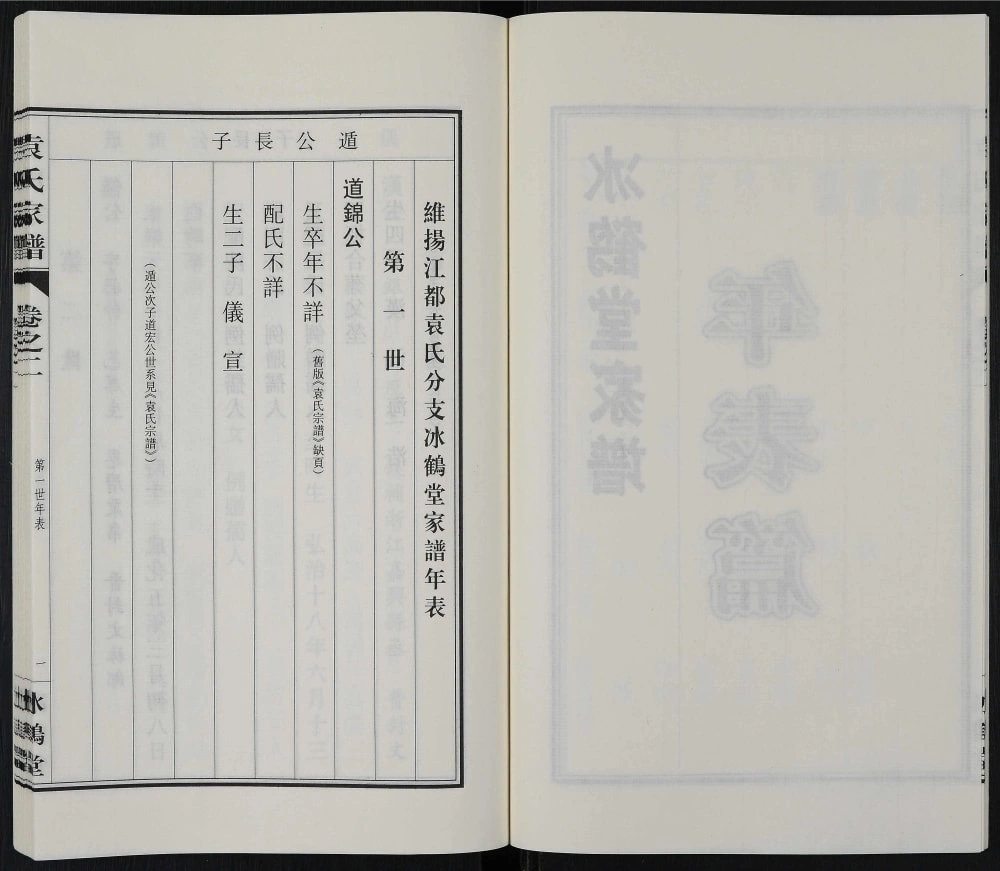 維揚江都袁氏分支冰鶴堂家譜年表
遁公長子
第一世
道錦公
生卒年不詳（舊版《袁氏宗譜》缺頁）
配氏不詳
生二子 儀 宣
（遁公次子道宏公世系見《袁氏宗譜》）
袁氏家譜
卷之二
第一世年表
一
冰鶴堂